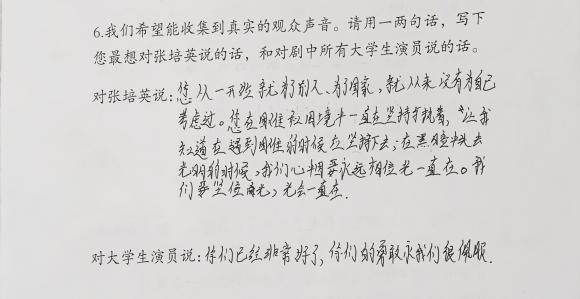 6.我们希望能收集到真实的观众声音。请用一两句话，写下
您最想对张培英说的话，和对剧中所有大学生演员说的话。
对张培英说：您从一开始就为了别人、为了国家，就从来没有为自己
考虑过。您在困难的困境中一直在坚持执着，让我
知道在遇到困难的时候应坚持下去，在黑暗中失去
光明的时候，我们心中要永远相信光一直在。我
们要坚信有光，光会一直在.
对大学生演员说：你们已经非常好了，你们的勇敢令我们很佩服.